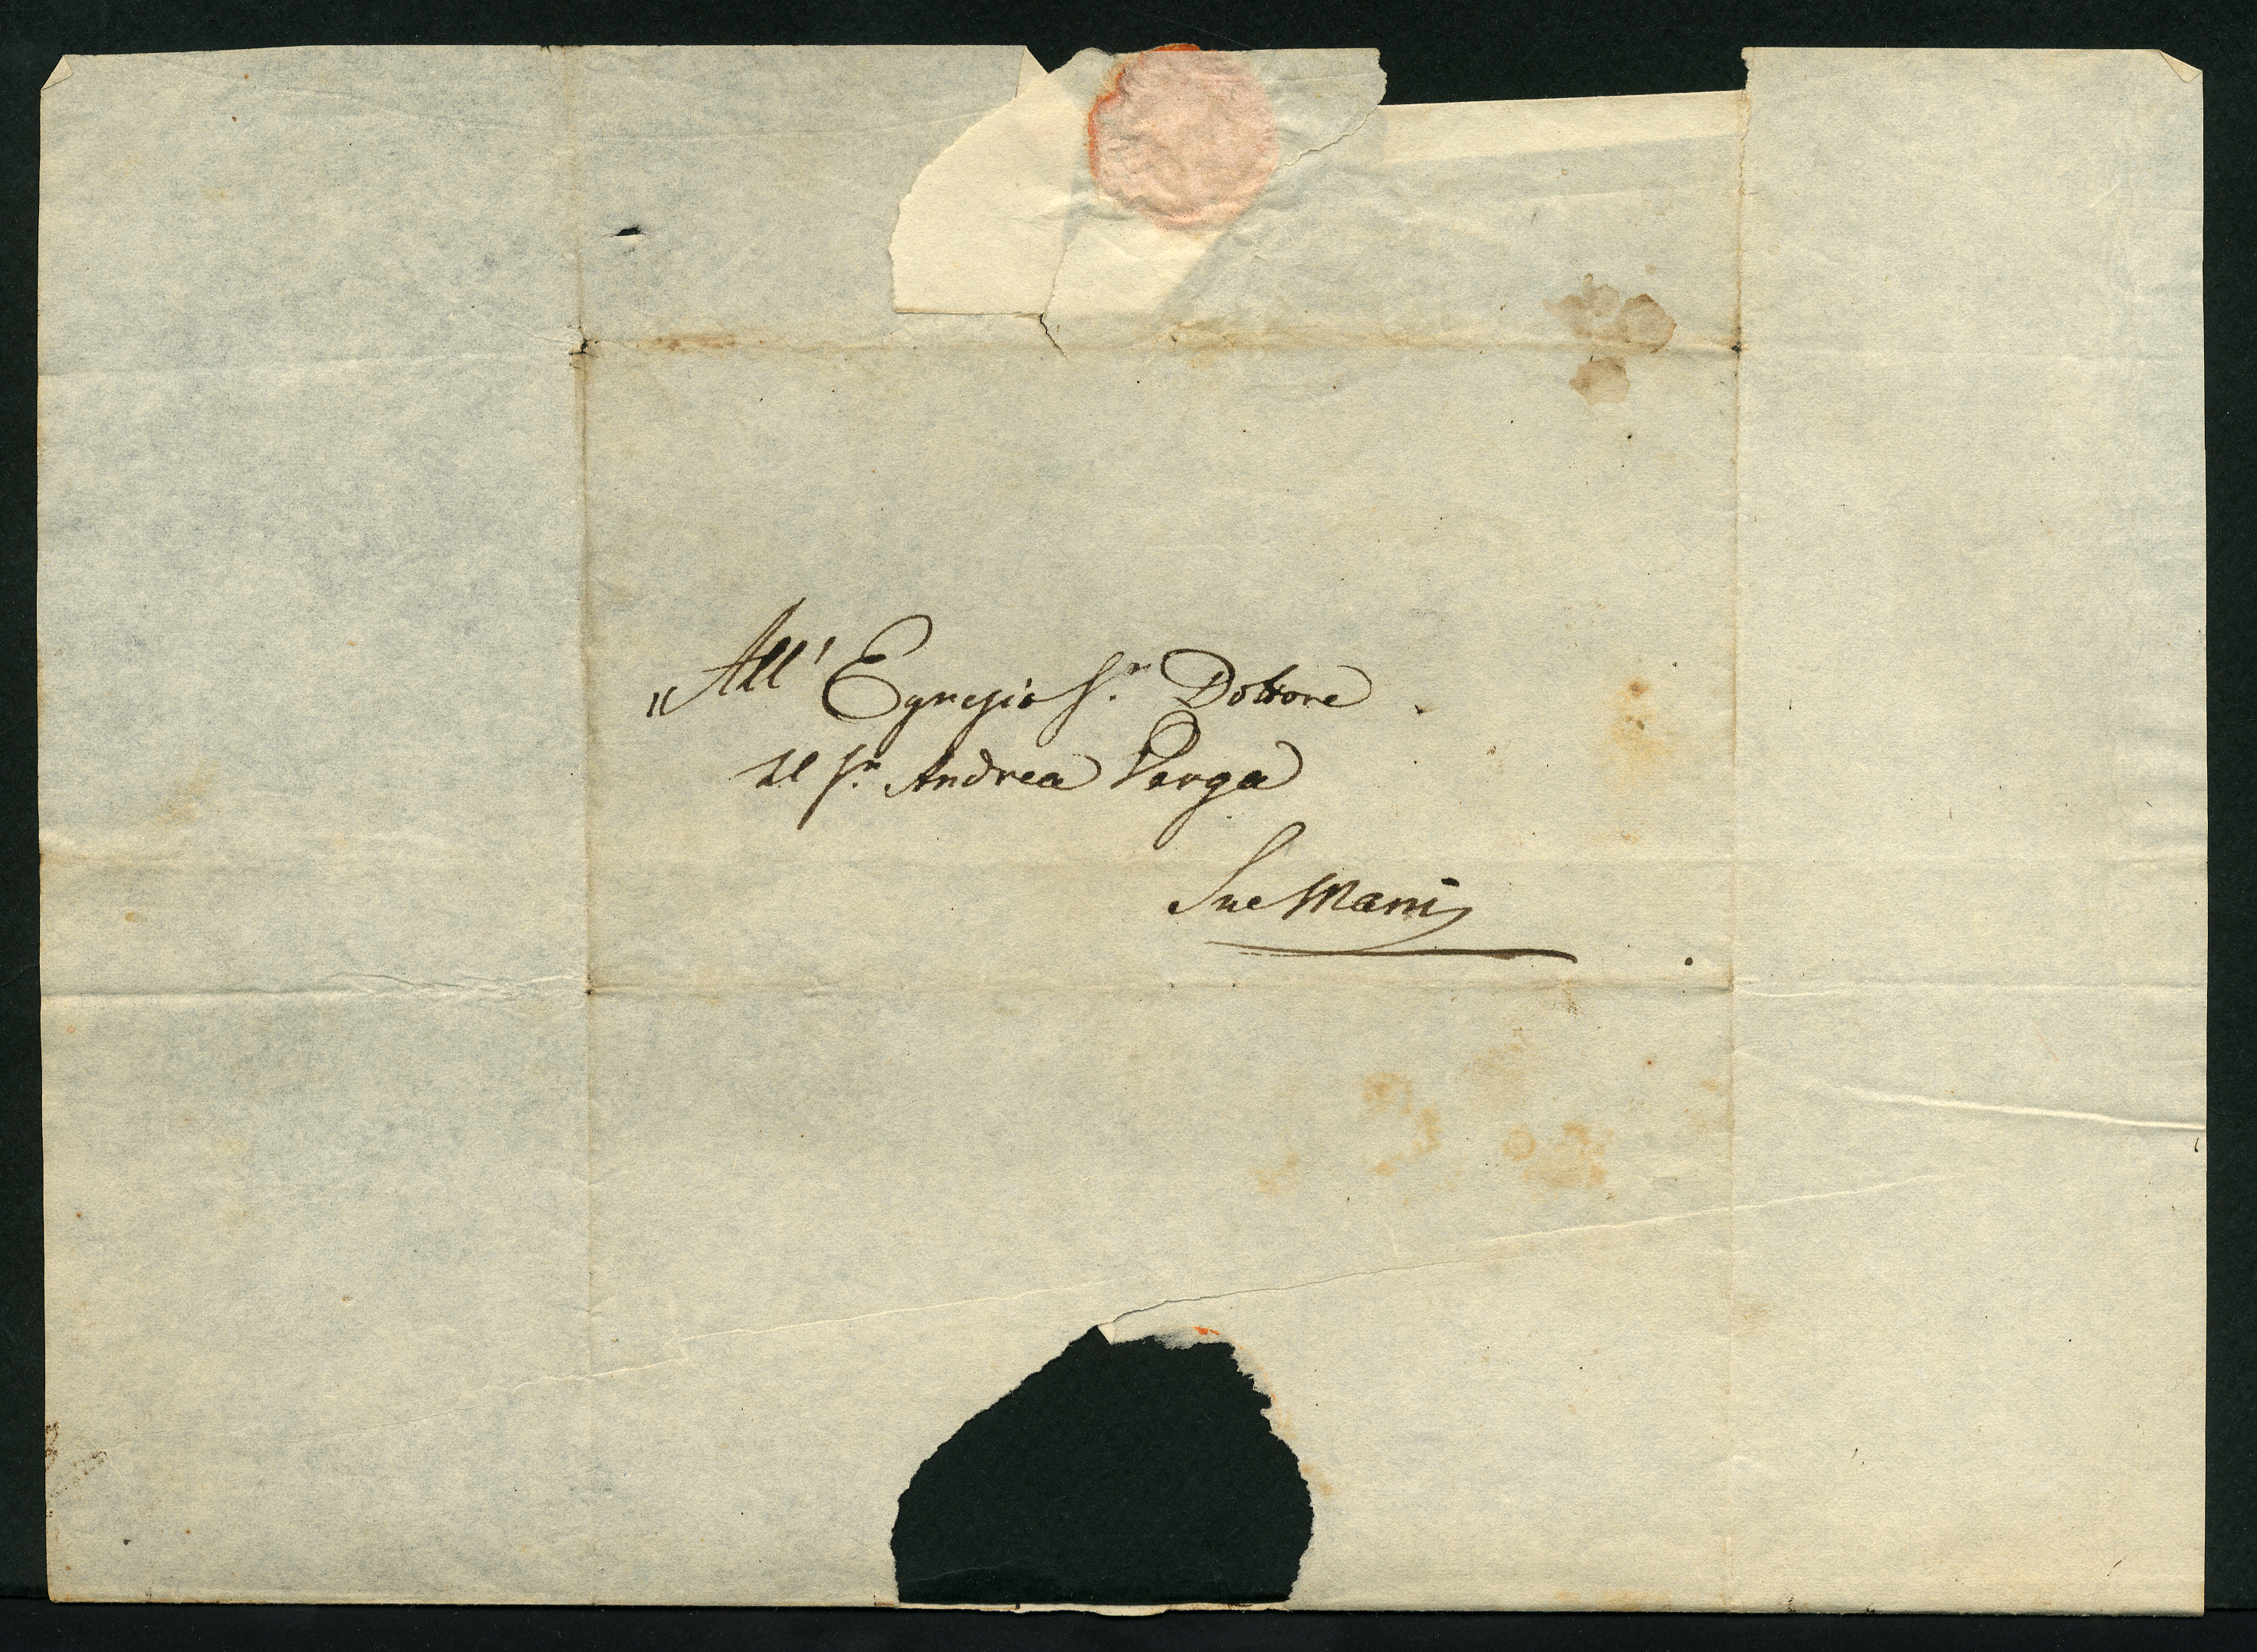 "All' Egregio Sr. Dottore
Il Sr. Andrea Verga
Sue Mani